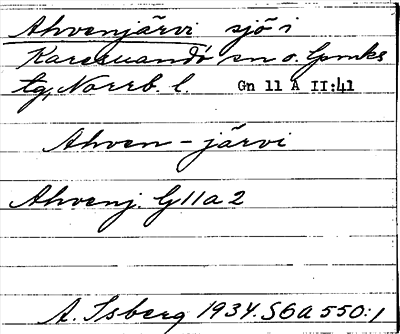 Ahvenjärvi sjö i
Karesuando sn o. lpmks
tg, Norrb. l. Gn 11 A II:41
Ahven-järvi
Ahvenj. G11a2
A. Isberg 1934. S6a 550:1